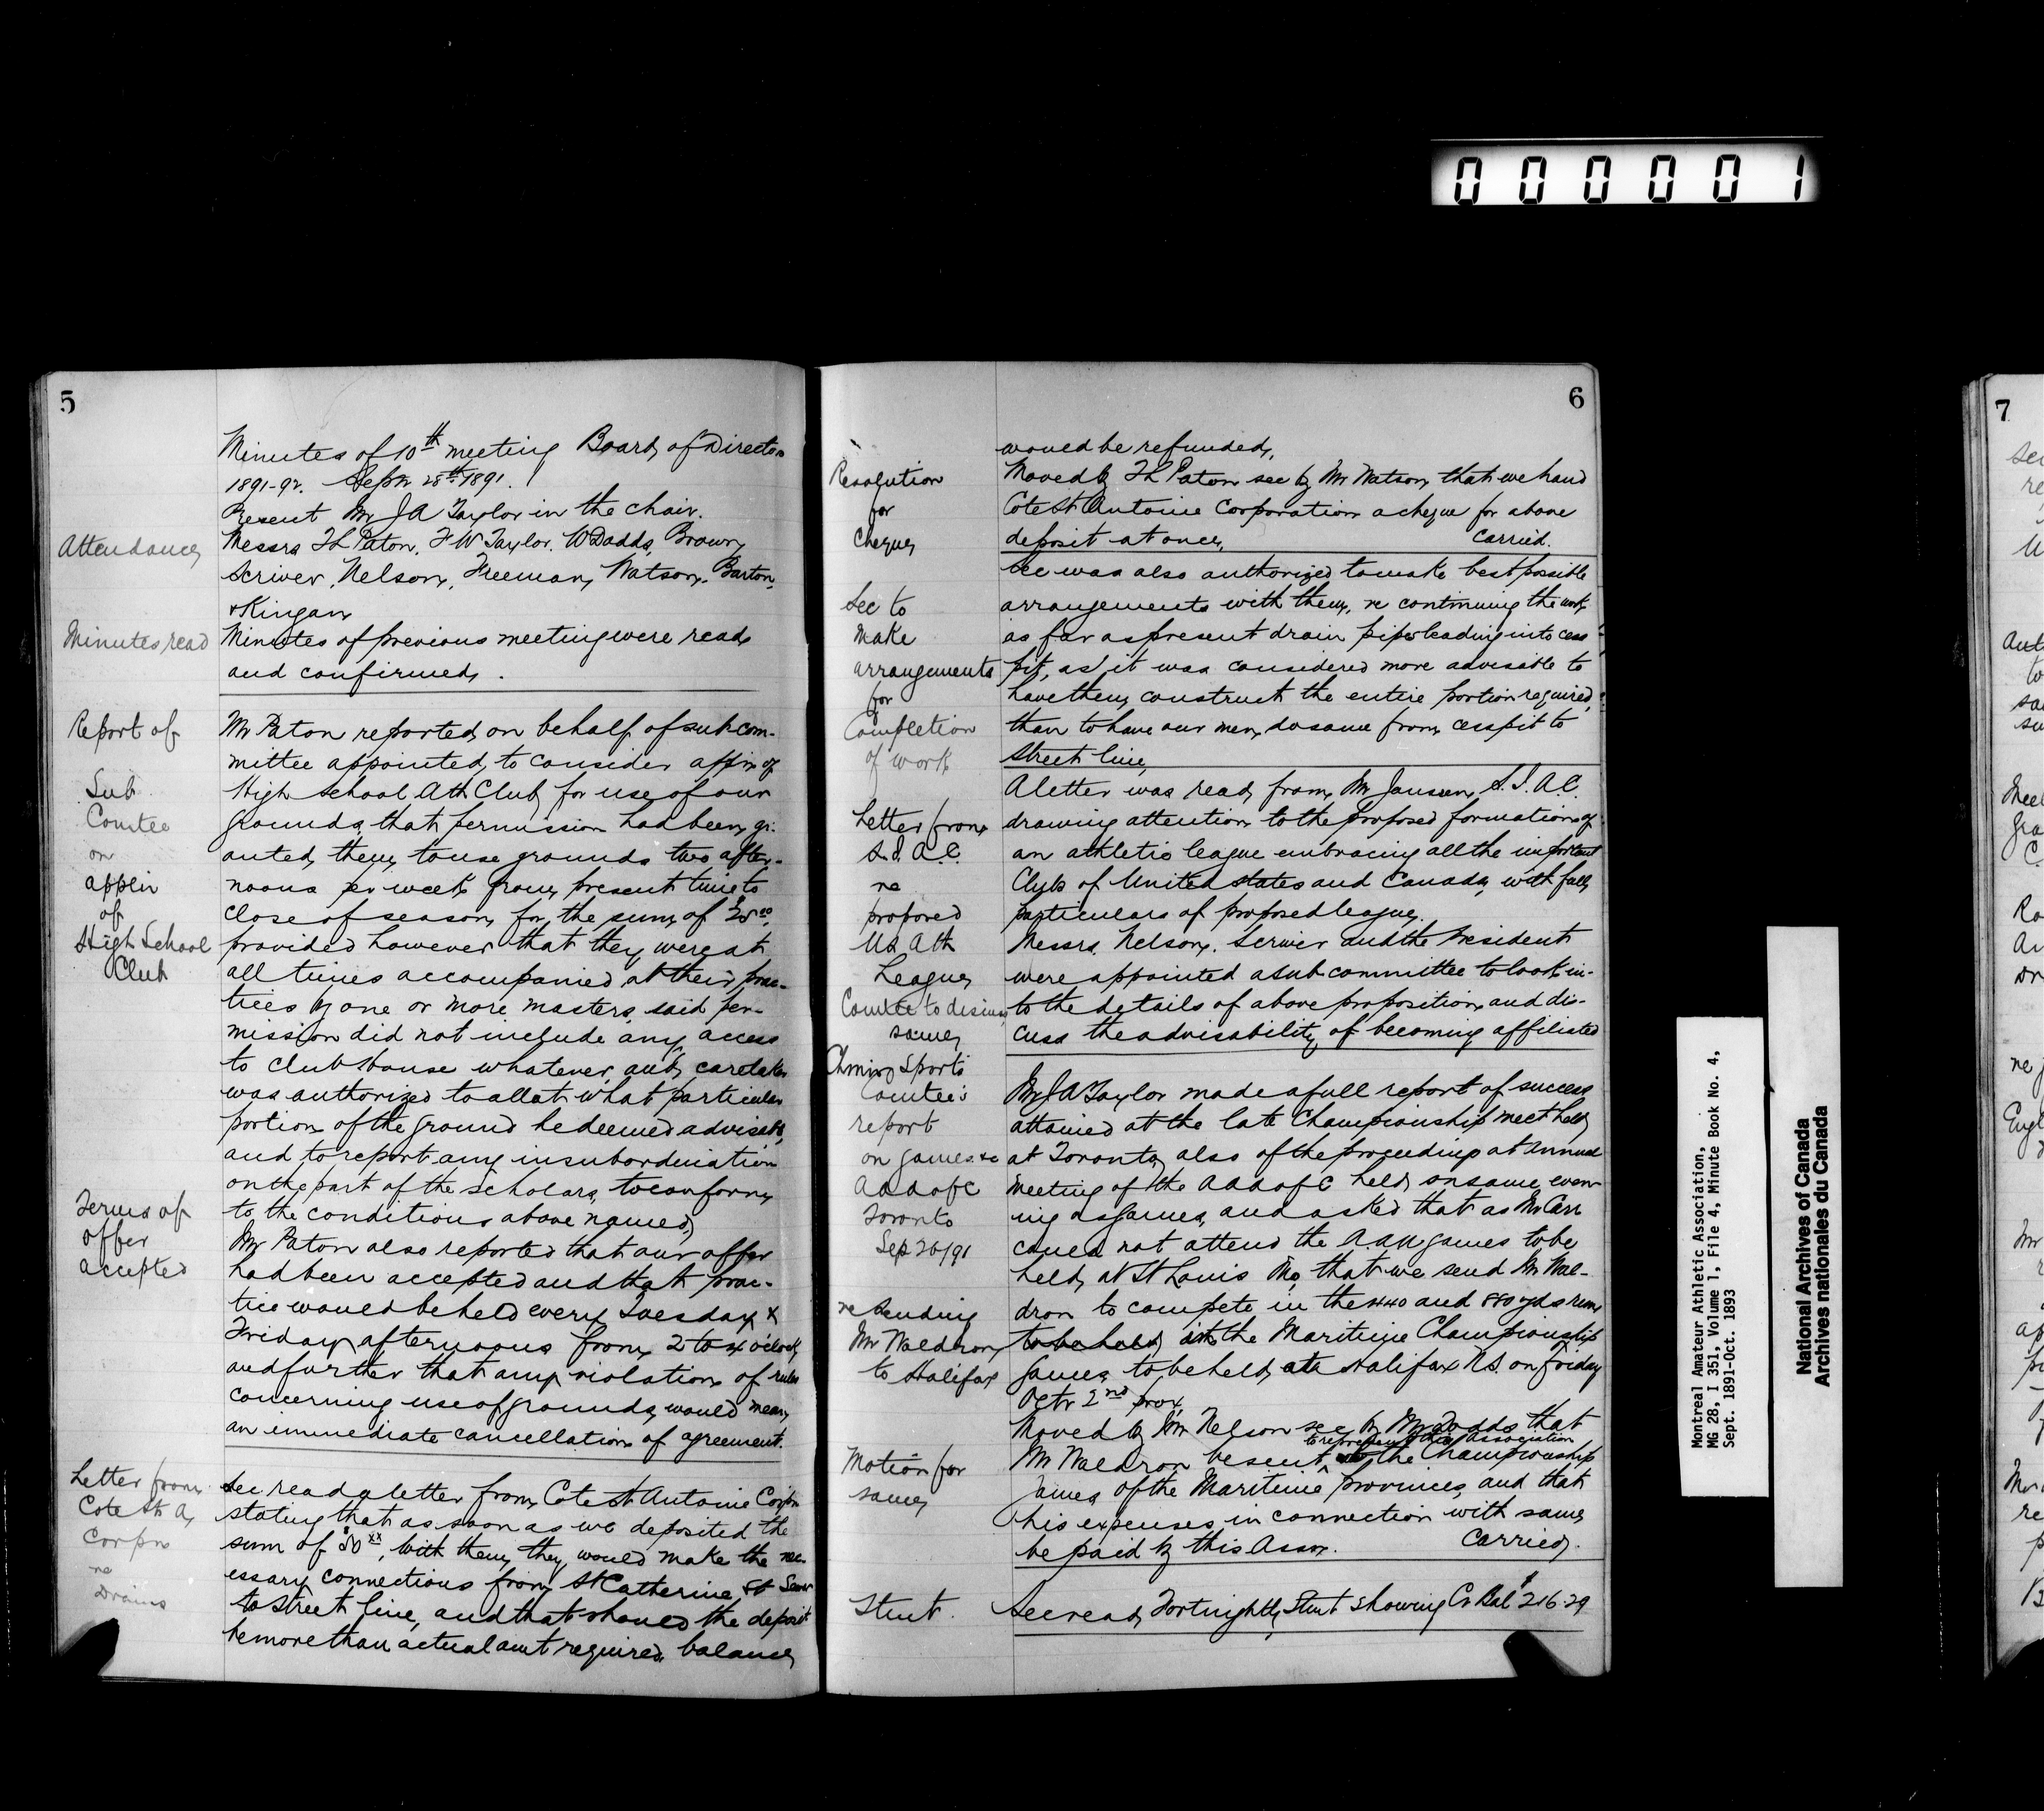 0 0 0 0 0 1
5
Minutes of 10th meeting Board of Directors
1891-92. Sepr 28th 1891.
Present Mr J A Taylor in the chair.
Attendance
Messrs T L Paton, F W Taylor, W Dodds, Brown,
Scriver, Nelson, Freeman, Watson, Barton,
& Kingan
Minutes read
Minutes of previous meeting were read
and confirmed.
Report of
Sub
Comtee
on
applin
of
High School
Club
Mr Paton reported on behalf of sub com-
mittee appointed to consider appln of
High School Ath Club for use of our
grounds, that permission had been gr-
anted them to use grounds two after-
noons per week from present time to
close of season for the sum of
provided however that they were at
all times accompanied at their prac-
tices by one or more masters, said per-
mission did not include any access
to Club house whatever, and caretaker
was authorized to allot what particular
portion of the ground he deemed advisable,
and to report any insubordination
on the part of the scholars, to conform
to the conditions above named,
Terms of
offer
accepted
Mr Paton also reported that our offer
had been accepted and that prac-
tice would be held every Tuesday &
Friday afternoons from 2 to 4 o'clock
and further that any violation of rules
concerning use of grounds, would mean
an immediate cancellation of agreement.
Letter from
Cote St A,
Corpn
re
Drains
Sec read a letter from Cote St Antoine Corpn
stating that as soon as we deposited the
sum of $50 xx, with them, they would make the nec-
essary connections from St Catherine St Sewer
to street line, and that should the deposit
be more than actual amt required, balance
6
would be refunded,
Resolution
for
Cheque
Moved by T L Paton sec by Mr Watson, that we hand
Cote St Antoine Corporation a cheque for above
deposit at once, Carried.
Sec to
make
arrangements
for
Completion
of work
Sec was also authorized to make best possible
arrangements with them, re continuing the work
as far as present drain pipes leading into cess
pit, as it was considered more advisable to
have them construct the entire portion required,
than to have our men do same from cesspit to
street line,
Letter from
S. I. A. C.
re
proposed
US Ath
League
A letter was read from Mr Janssen, S. I. A C.
drawing attention to the proposed formation of
an athletic league embracing all the important
Clubs of United States and Canada, with full
particulars of proposed league.
Comtee to discuss
same
Messrs. Nelson, Scriver and the President
were appointed a sub committee to look in-
to the details of above proposition, and dis-
cuss the advisability of becoming affiliated
Sports
Comtee's
report
on games &c
A A A of C
Toronto
Sep 26/91
Mr J A Taylor made a full report of success
attained at the late Championship meet held
at Toronto, also of the proceedings at Annual
Meeting of the A A A of C held on same even-
ing as games, and asked that as Mr Carr
could not attend the A. A U games to be
held at St Louis Mo, that we send Mr Wal-
re sending
Mr Waldron
to Halifax
dron to compete in the 440 and 880 yds runs
to be held at the Maritime Championship
games, to be held at Halifax N.S. on Friday
Octr 2nd prox,
Motion for
same
Moved by Mr Nelson sec by Mr Dodds that
to represent this Association
Mr Waldron be sent ^ to the Championship
Games of the Maritime provinces, and that
his expenses in connection with same,
be paid by this Assn. Carried.
Stmt.
Sec read Fortnightly Stmt showing Cr Bal $216.29
Montreal Amateur Athletic Association,
MG 28, I 351, Volume 1, File 4, Minute Book No. 4,
Sept. 1891-Oct. 1893
National Archives of Canada
Archives nationales du Canada
7